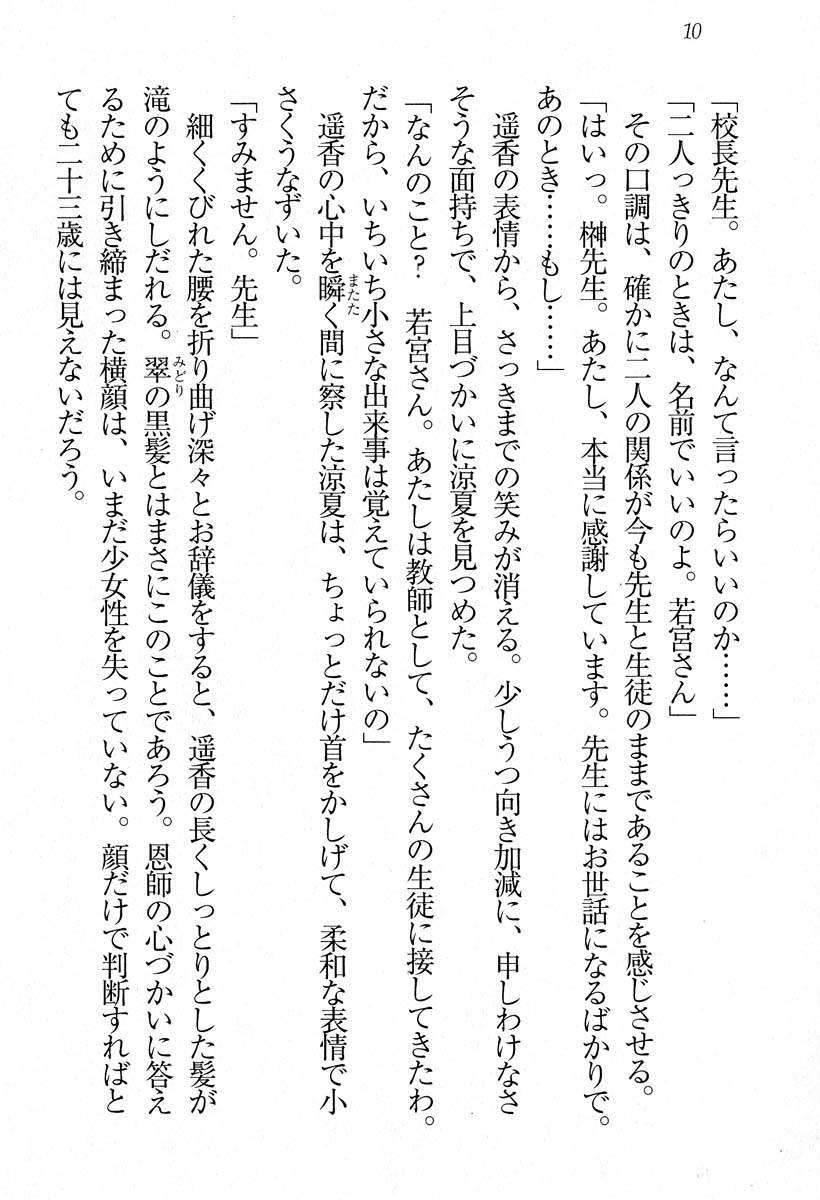 10
「校長先生。あたし、なんて言ったらいいのか……」
「二人っきりのときは、名前でいいのよ。若宮さん」
その口調は、確かに二人の関係が今も先生と生徒のままであることを感じさせる。
「はいっ。榊先生。あたし、本当に感謝しています。先生にはお世話になるばかりで。
あのとき……もし……」
遥香の表情から、さっきまでの笑みが消える。少しうつ向き加減に、申しわけなさ
そうな面持ちで、上目づかいに涼夏を見つめた。
「なんのこと?　若宮さん。あたしは教師として、たくさんの生徒に接してきたわ。
だから、いちいち小さな出来事は覚えていられないの」
遥香の心中を瞬く間に察した涼夏は、ちょっとだけ首をかしげて、柔和な表情で小
またた
さくうなずいた。
「すみません。先生」
細くくびれた腰を折り曲げ深々とお辞儀をすると、遥香の長くしっとりとした髪が
滝のようにしだれる。翠の黒髪とはまさにこのことであろう。恩師の心づかいに答え
みどり
るために引き締まった横顔は、いまだ少女性を失っていない。顔だけで判断すればと
ても二十三歳には見えないだろう。